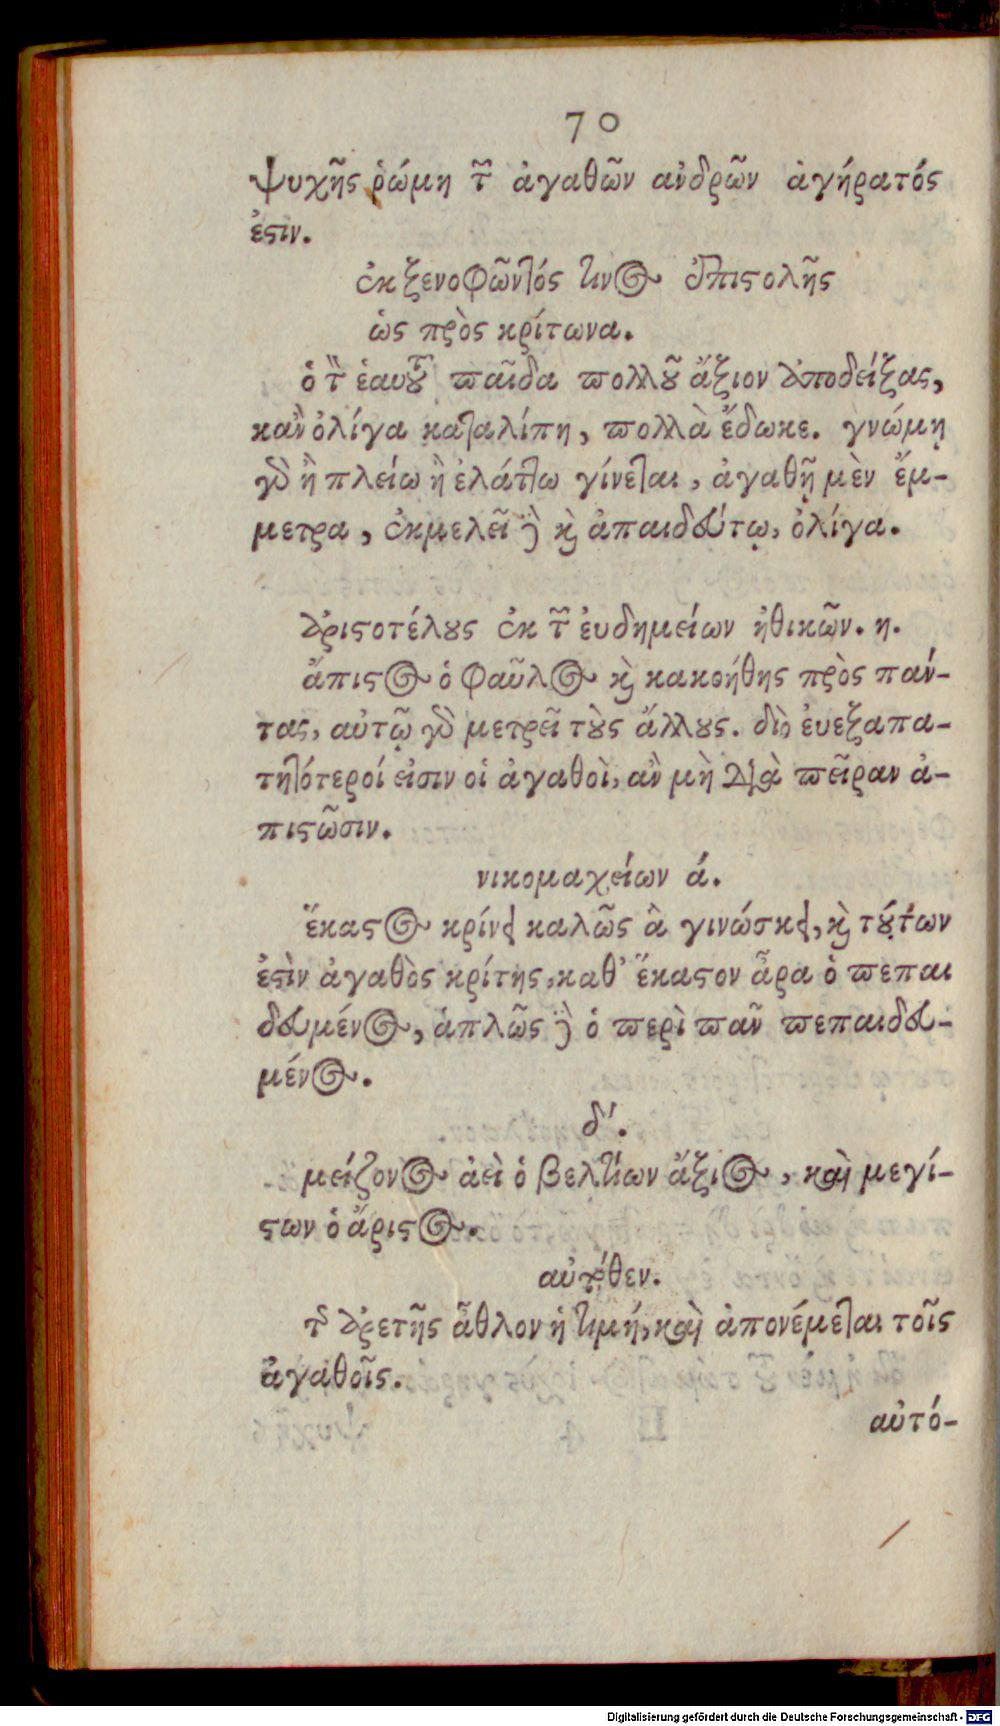 70
ψυχῆς ῥώμη τῶν ἀγαθῶν ἀνδρῶν ἀγήρατός
ἐστιν.
ἐκ ξενοφῶντός τινος ἐπιστολῆς
ὡς πρὸς κρίτωνα.
ὁ τὸν ἑαυτοῦ παῖδα πολλοῦ ἄξιον ἀποδείξας,
κἂν ὀλίγα καταλίπῃ, πολλὰ ἔδωκε. γνώμῃ
γὰρ ἢ πλείω ἢ ἐλάττω γίνεται, ἀγαθῇ μὲν ἔμ-
μετρα, ἐκμελεῖ δὲ καὶ ἀπαιδεύτῳ, ὀλίγα.
ἀριστοτέλους ἐκ τῶν ἐυδημείων ἠθικῶν. η.
ἄπιστος ὁ φαῦλος καὶ κακοήθης πρὸς πάν-
τας, αὑτῷ γὰρ μετρεῖ τοὺς ἄλλους. διὸ ἐυεξαπα-
τητότεροί εἰσιν οἱ ἀγαθοὶ, ἂν μὴ διὰ πεῖραν ἀ-
πιστῶσιν.
νικομαχείων ά.
ἕκαστος κρίνει καλῶς ἃ γινώσκει, καὶ τούτων
ἐστὶν ἀγαθὸς κρίτης, καθ' ἕκαστον ἄρα ὁ πεπαι
δευμένος, ἁπλῶς δὲ ὁ περὶ πᾶν πεπαιδευ-
μένος.
δ'.
μείζονος ἀεὶ ὁ βελτίων ἄξιος, καὶ μεγί-
στων ὁ ἄριστος.
αὐτόθεν.
τῆς ἀρετῆς ἆθλον ἡ τιμή, καὶ ἀπονέμεται τοῖς
ἀγαθοῖς.
αὐτό-
Digitalisierung gefördert durch die Deutsche Forschungsgemeinschaft - DFG